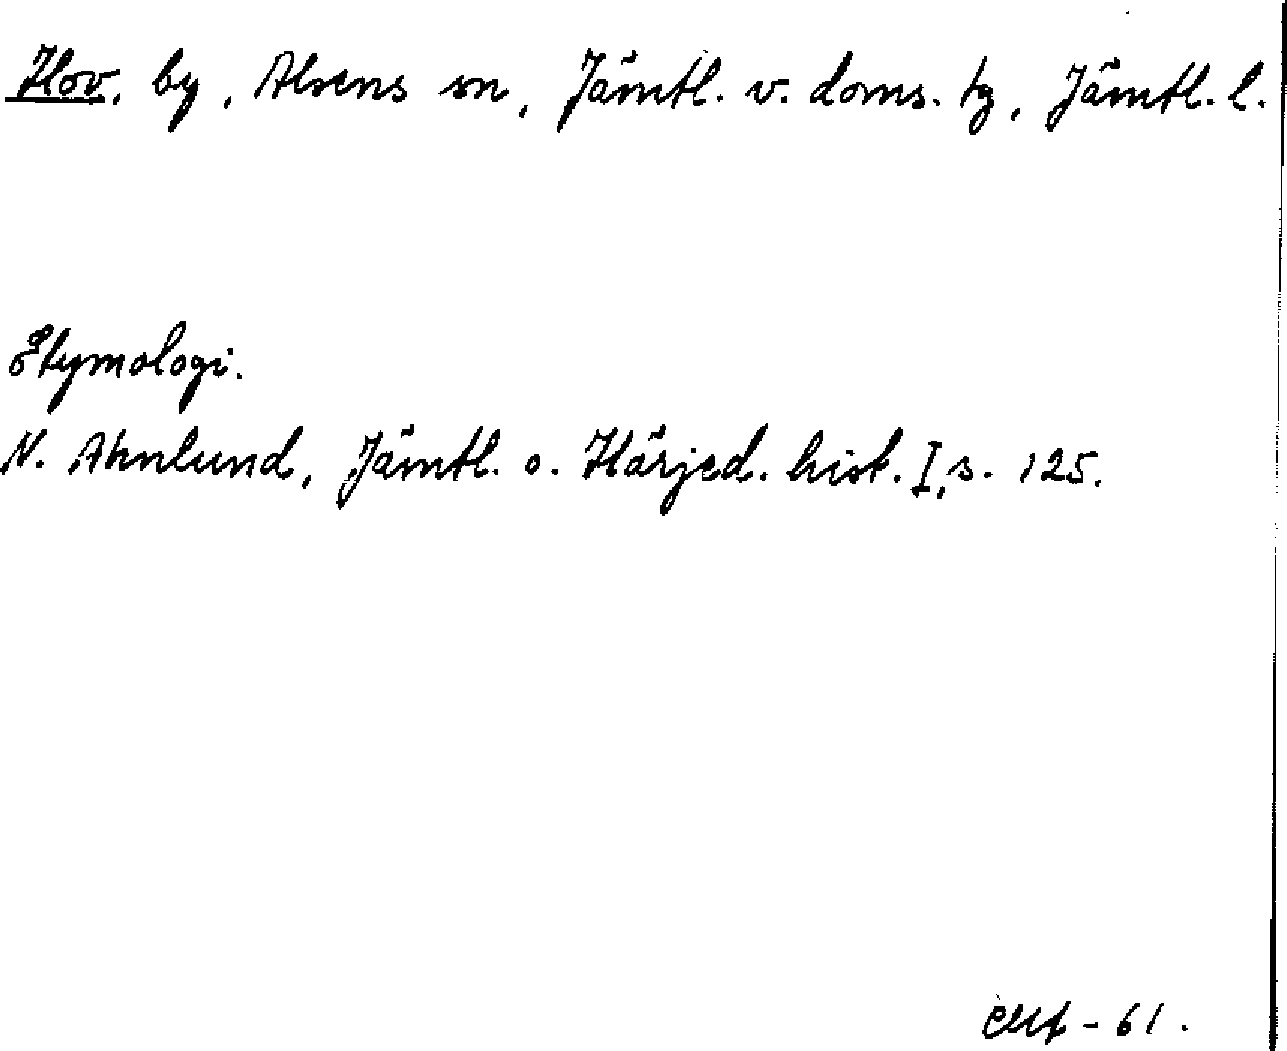 Hov, by, Alsens sn, Jämtl. v. doms. tg, Jämtl. l.
Etymologi.
N. Ahnlund, Jämtl. o. Härjed. hist. I, s. 125.
- 61.